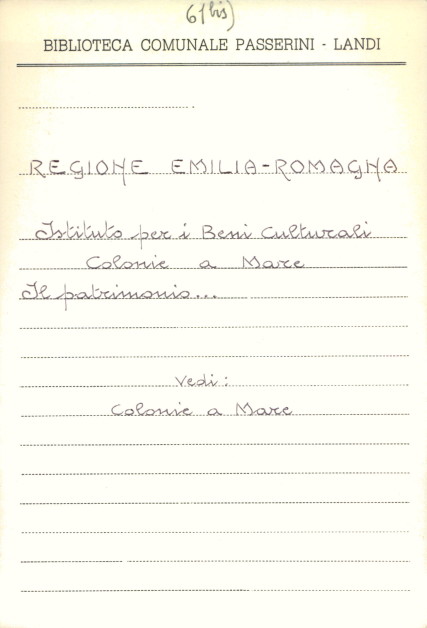 61bis)
BIBLIOTECA COMUNALE PASSERINI - LANDI
REGIONE EMILIA-ROMAGNA
Istituto per i Beni Culturali
Colonie a Mare
Il patrimonio...
Vedi:
Colonie a Mare